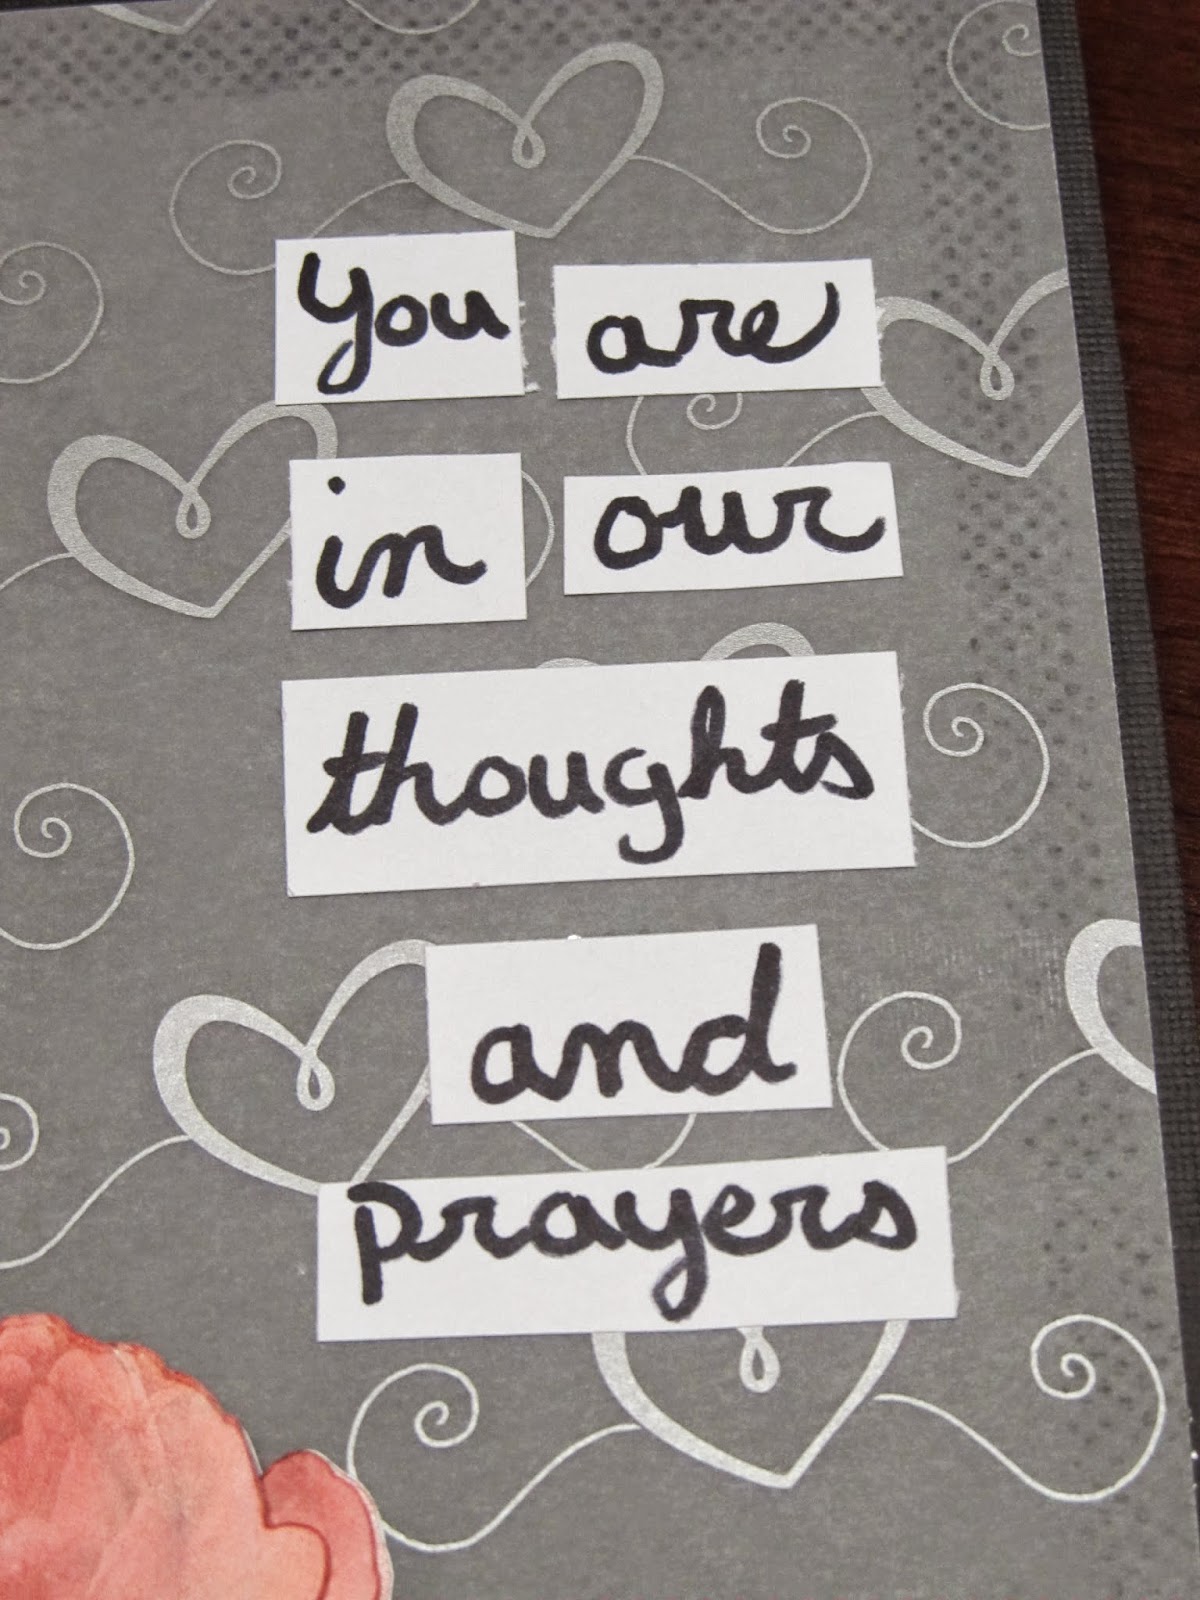 You are
in our
thoughts
and
prayers